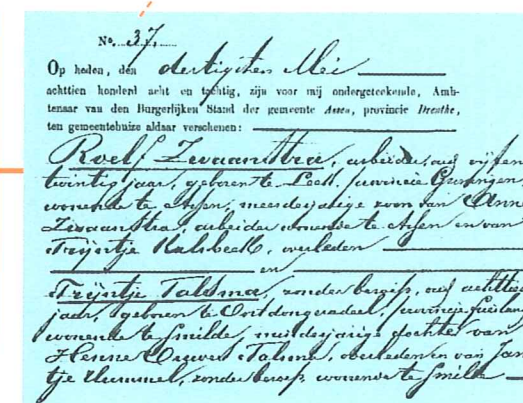 No. 37.
Op heden, den dertigsten Mei
achttien honderd acht en tachtig, zijn voor mij ondergeteekende, Amb-
tenaar van den Burgerlijken Stand der gemeente Assen, provincie Drenthe,
ten gemeentehuize aldaar verschenen:
Roelf Zwaanstra, arbeider, oud vijf en
twintig jaar, geboren te Leek, provincie Groningen,
wonende te Assen, meerderjarige zoon van Anne
Zwaanstra, arbeider wonende te Assen en van
Trijntje Halsbeek, overleden
en
Trijntje Talsma, zonder beroep, oud achttien
jaar, geboren te Oostdongeradeel, provincie Friesland
wonende te Smilde, minderjarige dochter van
Talsma, overleden en van Jan
tje Hummel, zonder beroep, wonende te Smilde